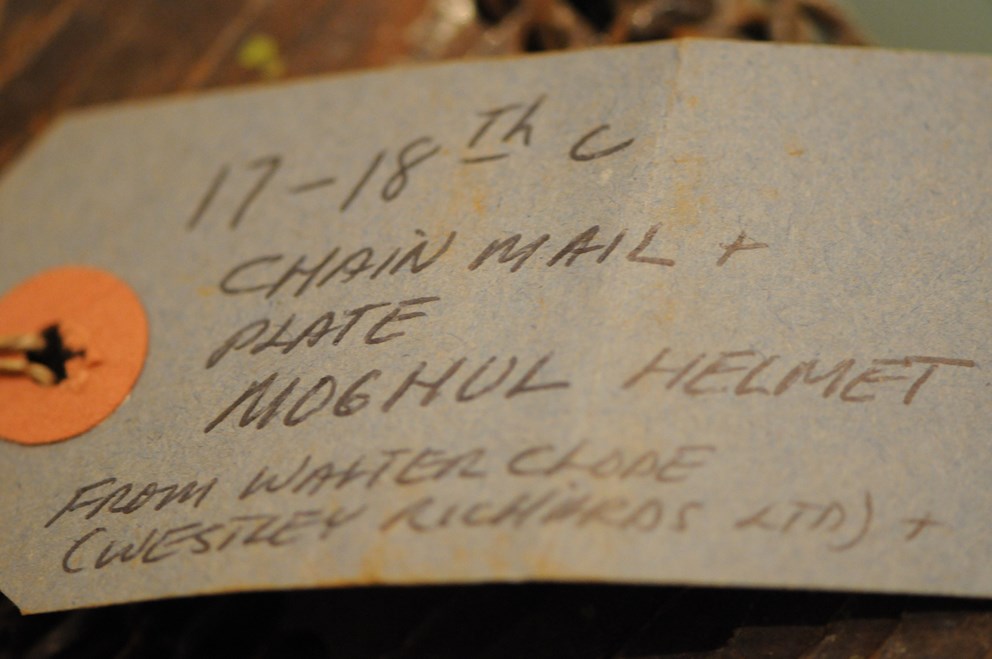 17-18Th C
CHAIN MAIL +
PLATE
MOGHUL HELMET
FROM WALTER CLODE
(WESTLEY RICHARDS LTD) +